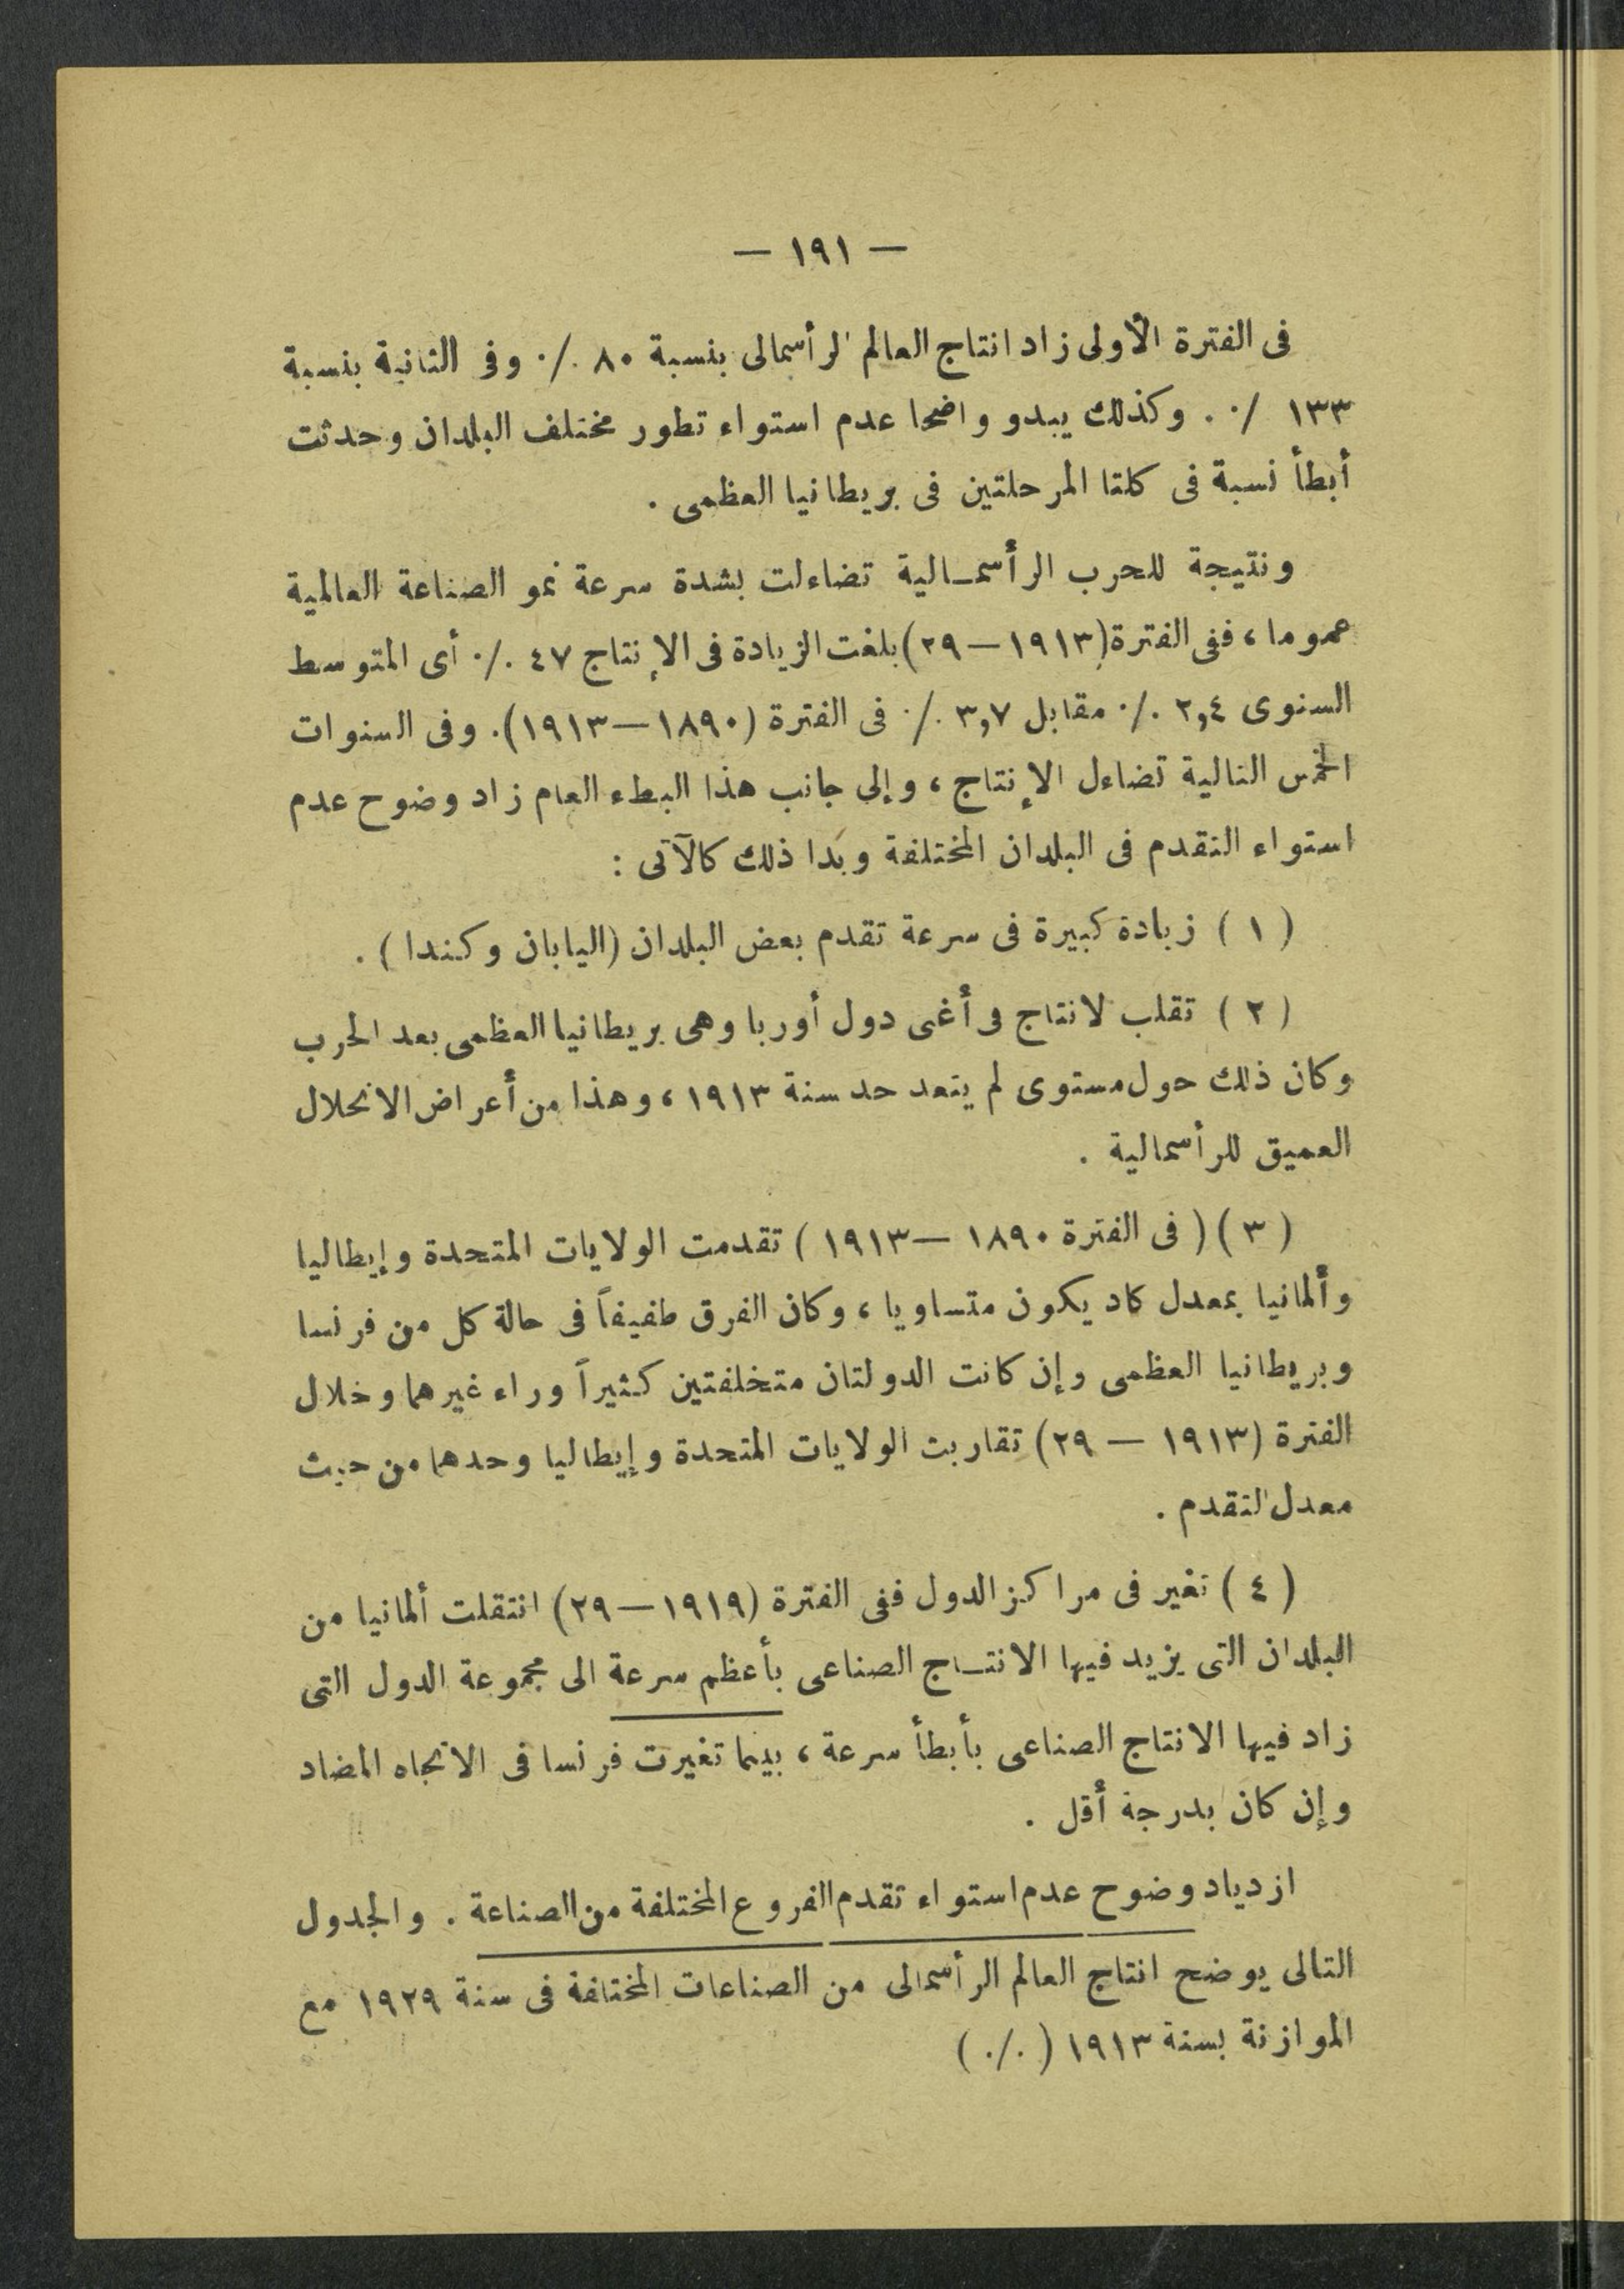 — ١٩١ —
فى الفترة الأولى زاد انتاج العالم الرأسمالى بنسبة ٨٠ ٪ وفى الثانية بنسبة
١٣٣ ٪ . وكذلك يبدو واضحا عدم استواء تطور مختلف البلدان وحدثت
أبطأ نسبة فى كلتا المرحلتين فى بريطانيا العظمى .
ونتيجة للحرب الرأسمالية تضاءلت بشدة سرعة نمو الصناعة العالمية
عموما ، ففى الفترة (١٩١٣ — ٢٩) بلغت الزيادة فى الإنتاج ٤٧ ٪ أى المتوسط
السنوى ٢,٤ ٪ مقابل ٣,٧ ٪ فى الفترة (١٨٩٠ — ١٩١٣). وفى السنوات
الخمس التالية تضاءل الإنتاج ، وإلى جانب هذا البطء العام زاد وضوح عدم
استواء التقدم فى البلدان المختلفة وبَدا ذلك كالآتى :
( ١ ) زيادة كبيرة فى سرعة تقدم بعض البلدان (اليابان وكندا ) .
( ٢ ) تقلب لانتاج فى أغنى دول أوربا وهى بريطانيا العظمى بعد الحرب
وكان ذلك حول مستوى لم يتعد حد سنة ١٩١٣ ، وهذا من أعراض الانحلال
العميق للرأسمالية .
( ٣ ) ( فى الفترة ١٨٩٠ — ١٩١٣ ) تقدمت الولايات المتحدة وإيطاليا
وألمانيا بمعدل كاد يكون متساويا ، وكان الفرق طفيفاً فى حالة كل من فرنسا
وبريطانيا العظمى وإن كانت الدولتان متخلفتين كثيراً وراء غيرهما وخلال
الفترة (١٩١٣ — ٢٩) تقاربت الولايات المتحدة وإيطاليا وحدهما من حيث
معدل التقدم .
( ٤ ) تغير فى مراكز الدول ففى الفترة (١٩١٩ — ٢٩) انتقلت ألمانيا من
البلدان التى يزيد فيها الانتاج الصناعى بأعظم سرعة الى مجموعة الدول التى
زاد فيها الانتاج الصناعى بأبطأ سرعة ، بينما تغيرت فرنسا فى الاتجاه المضاد
وإن كان بدرجة أقل .
ازدياد وضوح عدم استواء تقدم الفروع المختلفة من الصناعة . والجدول
التالى يوضح انتاج العالم الرأسمالى من الصناعات المختلفة فى سنة ١٩٢٩ مع
الموازنة بسنة ١٩١٣ ( ٪ )